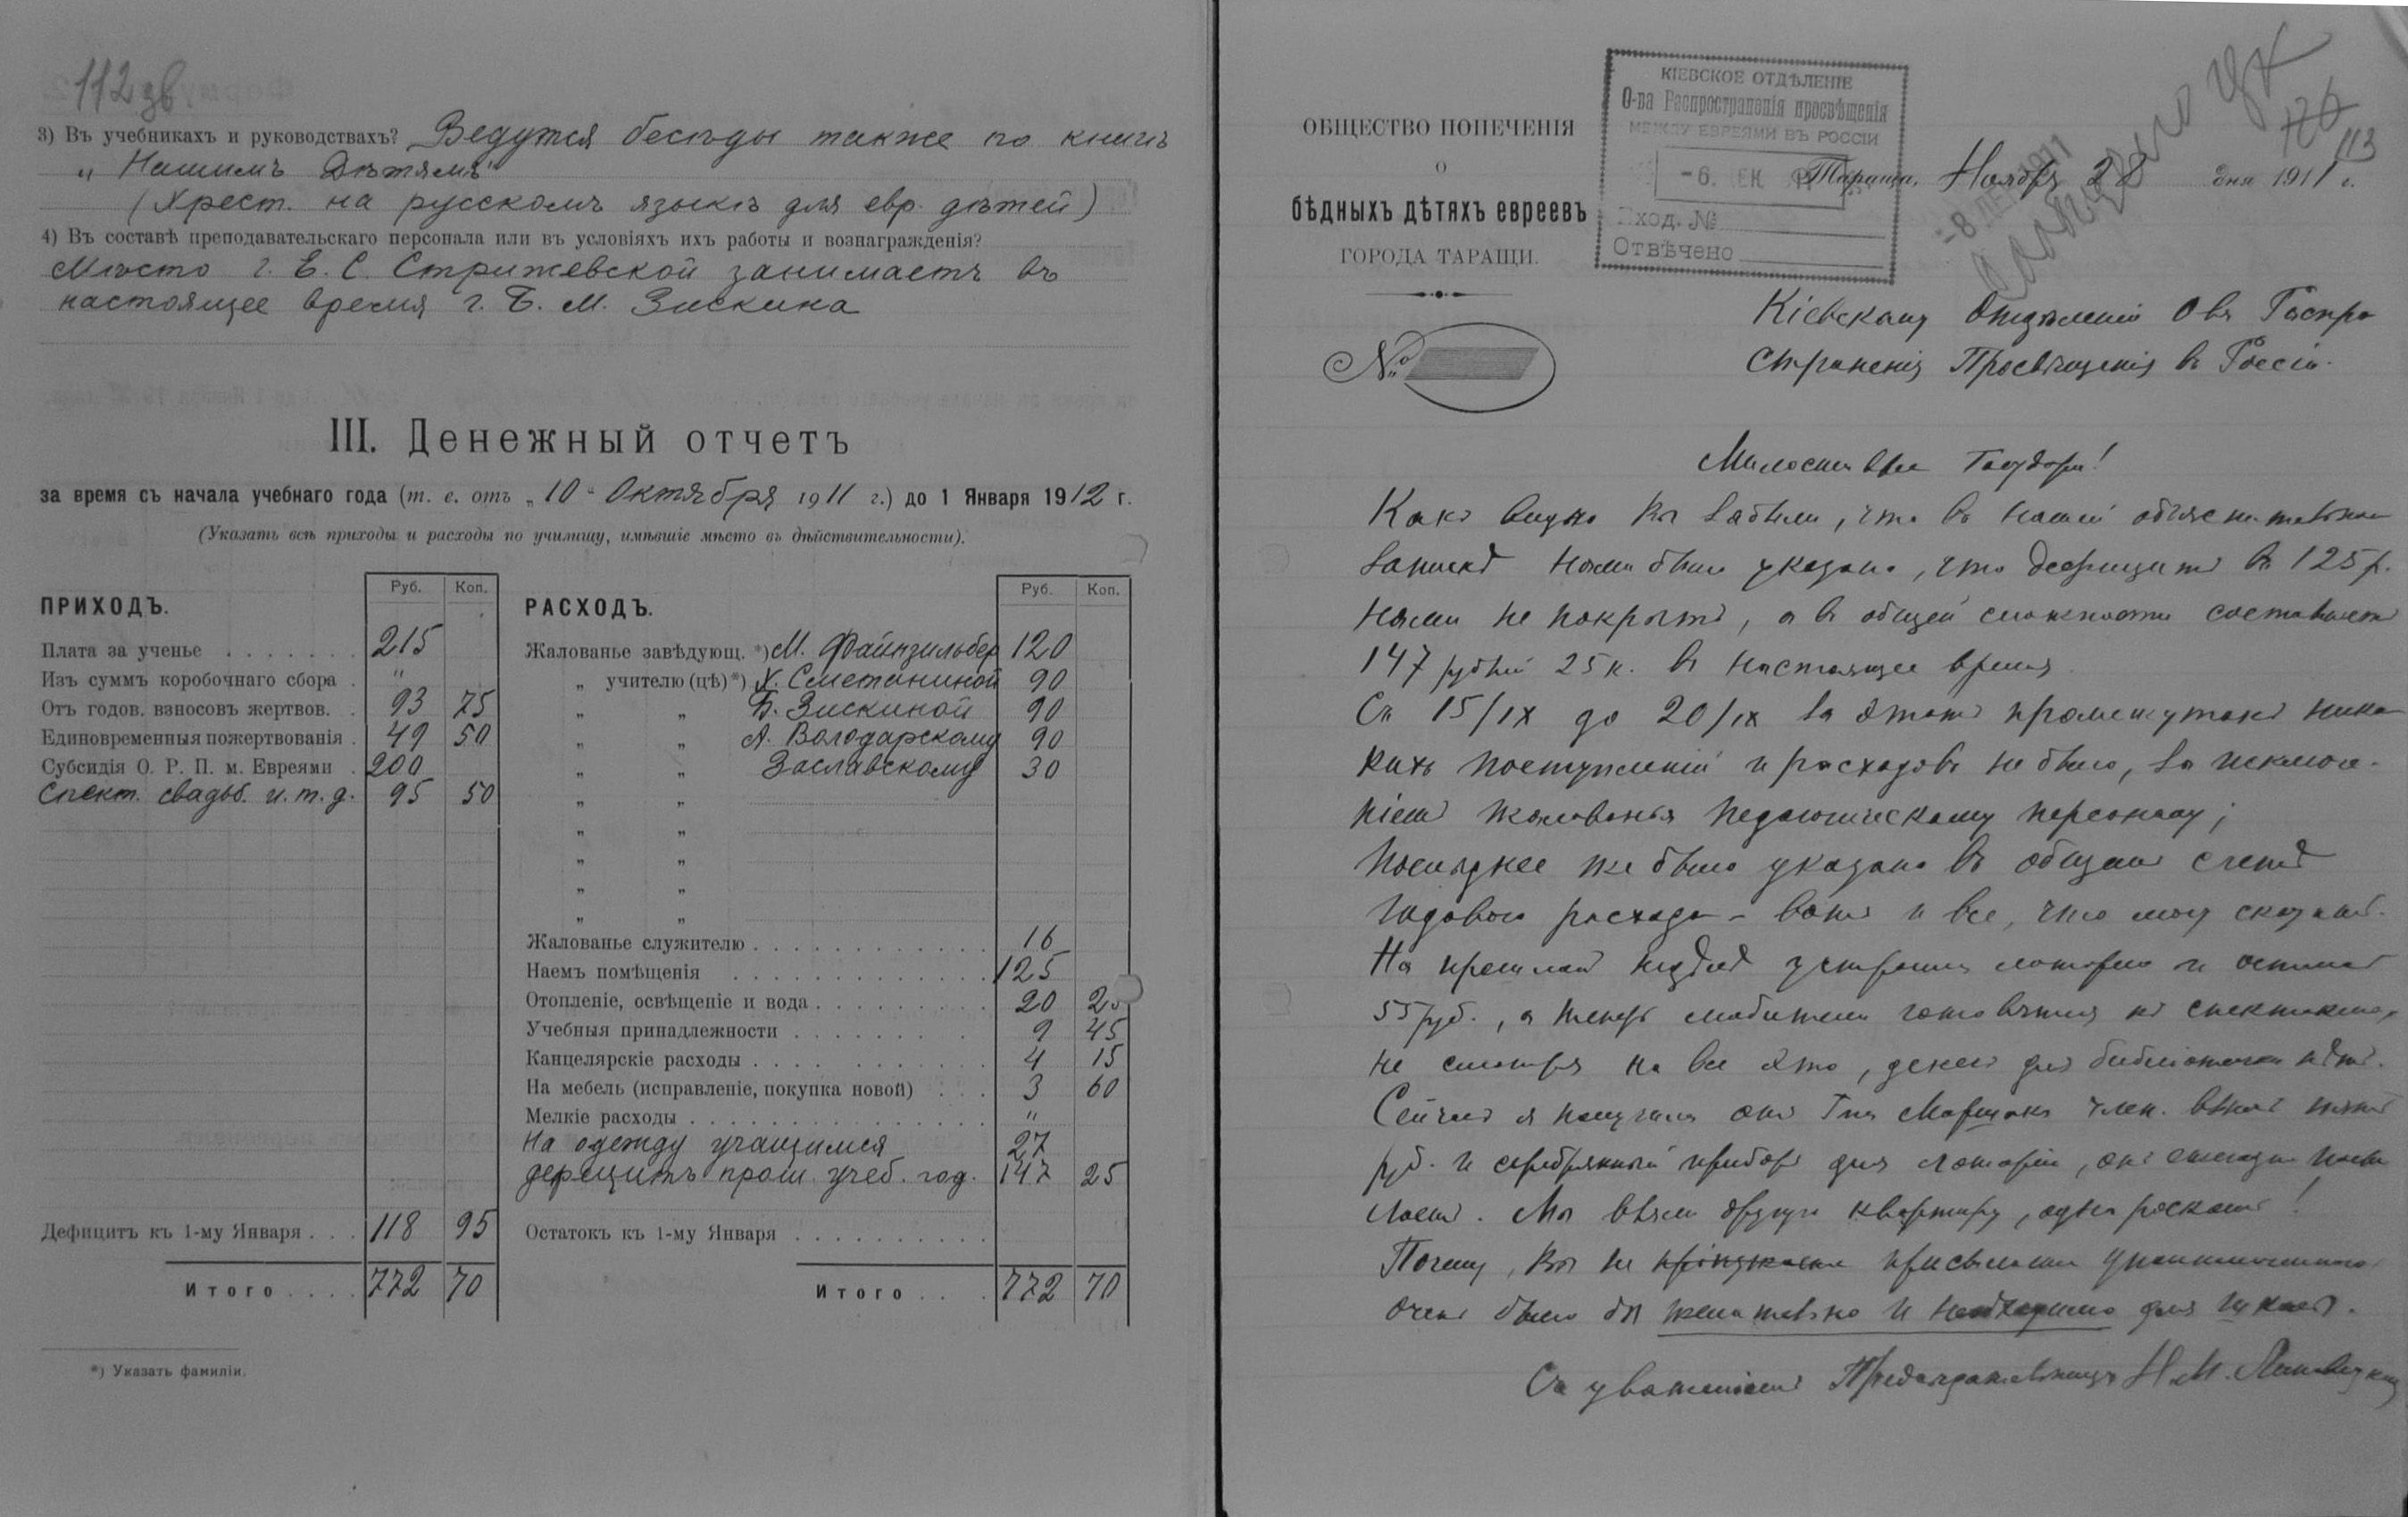 112 об
3) Въ учебникахъ и руководствахъ? Ведутся бесѣды также по книгѣ
„ Нашимъ Дѣтямъ"
(Хрест. на русскомъ языкѣ для евр. дѣтей)
4) Въ составѣ преподавательскаго персонала или въ условіяхъ ихъ работы и вознагражденія?
Мѣсто г. Е. С. Стрижевской занимаетъ въ
настоящее время г. Б. М. Зискина
III. Денежный отчетъ
за время съ начала учебнаго года (т. е. отъ „ 10 " Октября 1911 г.) до 1 Января 1912 г.
(Указать всѣ приходы и расходы по училищу, имѣвшіе мѣсто въ дѣйствительности).
ПРИХОДЪ. Руб. Коп.
Плата за ученье 215
Изъ суммъ коробочнаго сбора "
Отъ годов. взносовъ жертвов. 93 75
Единовременныя пожертвованія 49 50
Субсидія О. Р. П. м. Евреями 200
Спект. свадьб. и. т. д. 95 50
Дефицитъ къ 1-му Января 118 95
Итого 772 70
*) Указать фамиліи.
РАСХОДЪ. Руб. Коп.
Жалованье завѣдующ. *) М. Файнзильбер 120
„ учителю (цѣ) *) Х. Сметаниной 90
„ „ Б. Зискиной 90
„ „ А. Володарскому 90
„ „ Заславскому 30
„ „
„ „
„ „
„ „
„ „
Жалованье служителю 16
Наемъ помѣщенія 125
Отопленіе, освѣщеніе и вода 20 25
Учебныя принадлежности 9 45
Канцелярскіе расходы 4 15
На мебель (исправленіе, покупка новой) 3 60
Мелкіе расходы "
На одежду учащимся 27
дефицитъ прош. учеб. год. 147 25
Остатокъ къ 1-му Января
Итого 772 70
ОБЩЕСТВО ПОПЕЧЕНІЯ
О
БѢДНЫХЪ ДѢТЯХЪ ЕВРЕЕВЪ
ГОРОДА ТАРАЩИ.
№
КІЕВСКОЕ ОТДѢЛЕНІЕ
О-ва Распространенія просвѣщенія
МЕЖДУ ЕВРЕЯМИ ВЪ РОССІИ
-6. ДЕК
Вход. №
Отвѣчено
-8 ДЕК 1911
113
Тараща, Ноября 28 дня 1911 г.
Кіевскому Отдѣленію О-ва Распро
страненія Просвѣщенія въ Россіи.
Милостивые Государи!
Какъ видно Вы забыли, что въ нашей объяснительной
запискѣ нами было указано, что дефицитъ въ 125 р.
нами не покрытъ, а въ общей сложности составляетъ
147 рублей 25 к. въ настоящее время.
Съ 15/IX до 20/IX за этотъ промежутокъ ника
кихъ поступленій и расходовъ не было, за исключе-
ніемъ жалованья педагогическому персоналу;
послѣднее же было указано въ общемъ счетѣ
годового расхода – вотъ и все, что могу сказать.
На прошлой недѣлѣ устроили лотерею и
55 руб., а теперь любители готовятся къ спектаклю,
не смотря на все это, денегъ для библіотечки нѣтъ.
Сейчасъ я получила отъ Г-на Маршака член. взносъ пять
руб. и серебрянный приборъ для лотереи,
Мы взяли другую квартиру, одна роскошь!
Почему, Вы не присылаете уполномоченнаго
очень было бы желательно и необходимо для школы.
Съ уваженіемъ Предсѣдательница Н. М.